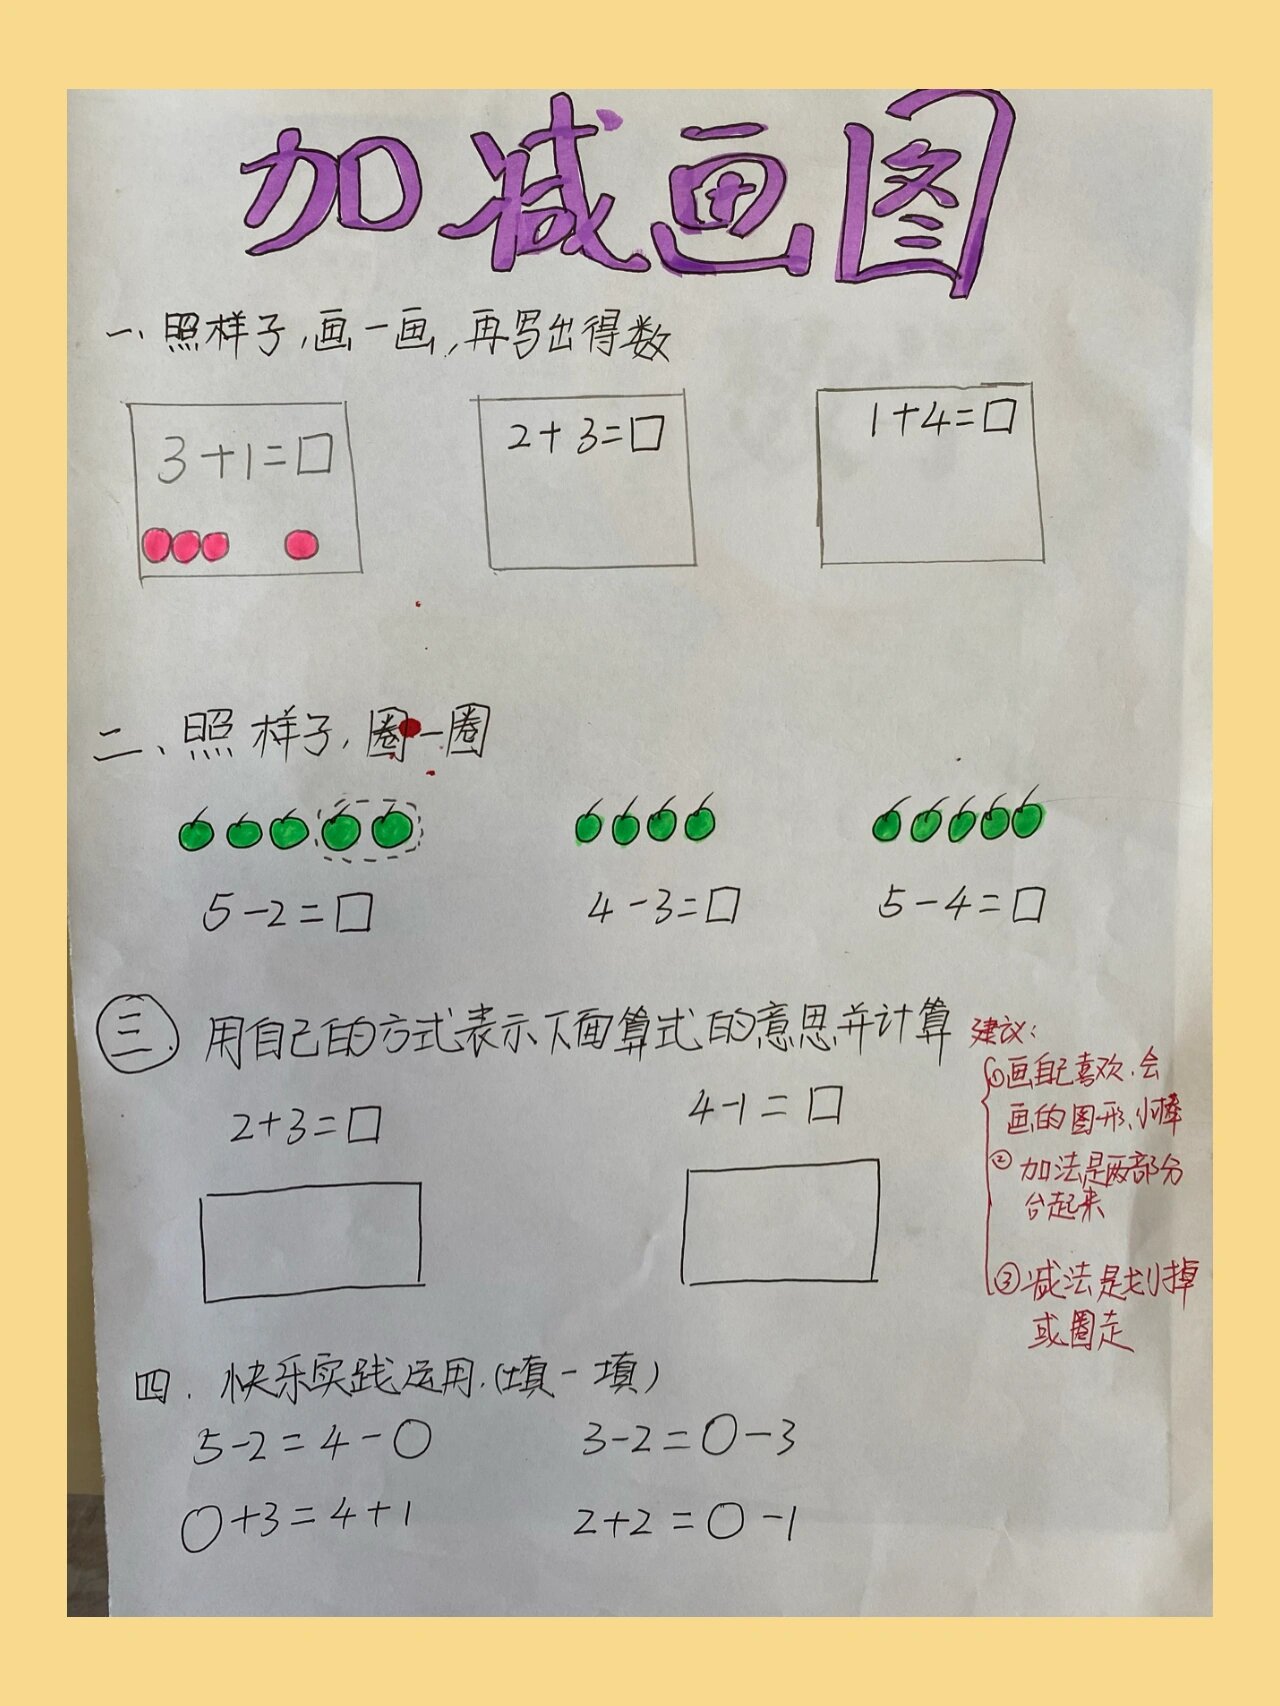 加减画图
一、照样子，画一画，再写出得数
3+1=□
2+3=□
1+4=□
二、照样子，圈一圈
5-2=□
4-3=□
5-4=□
三、用自己的方式表示下面算式的意思并计算
2+3=□
4-1=□
建议：
①画自己喜欢、会
画的图形、小棒
②加法是两部分
合起来
③减法是划掉
或圈走
四、快乐实践运用.(填一填)
5-2=4-○
3-2=○-3
○+3=4+1
2+2=○-1